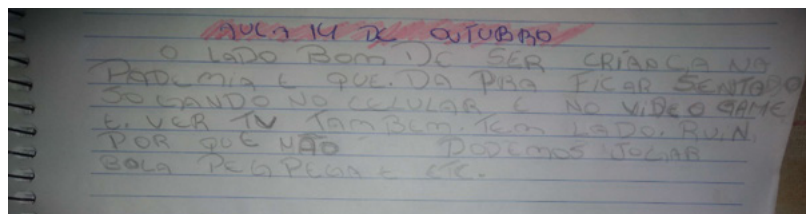 AULA 14 DE OUTUBRO
O LADO BOM DE SER CRIANCA NA
PADEMIA E QUE. DA PIRA FICAR SENTADO
JOGANDO NO CELULAR E NO VIDEO GAME
E. VER TV TAMBEM. TEM LADO. RUIN.
POR QUE NÃO PODEMOS JOGAR
BOLA PEGA PEGA E ETC.